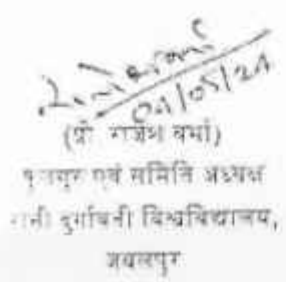 01/05/21
(प्रो. राजेश वर्मा)
कुलगुरु एवं समिति अध्यक्ष
रानी दुर्गावती विश्वविद्यालय,
जबलपुर